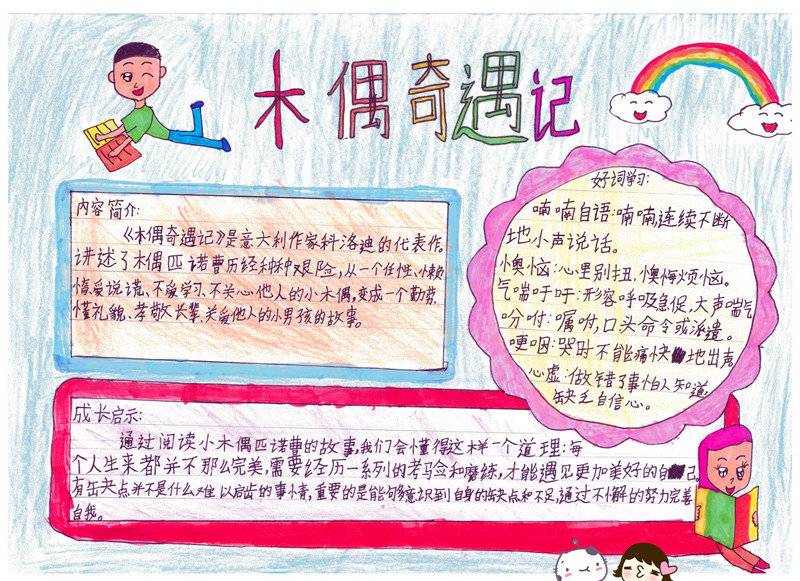 木偶奇遇记
内容简介:
《木偶奇遇记》是意大利作家科洛迪的代表作。
讲述了木偶匹诺曹历经种种艰险,从一个任性、懒
惰、爱说谎、不爱学习、不关心他人的小木偶,变成一个勤劳、
懂礼貌、孝敬长辈、关爱他人的小男孩的故事。
好词学习:
喃喃自语:喃喃,连续不断
地小声说话。
懊恼:心里别扭,懊悔烦恼。
气喘吁吁:形容呼吸急促,大声喘气
吩咐:嘱咐,口头命令或派遣。
哽咽:哭时不能痛快地出声
心虚:做错了事怕人知道,
缺乏自信心。
成长启示:
通过阅读小木偶匹诺曹的故事,我们会懂得这样一个道理:每
个人生来都并不那么完美,需要经历一系列的考验和磨练,才能遇见更加美好的自己。
有缺点并不是什么难以启齿的事情,重要的是能够意识到自身的缺点和不足,通过不懈的努力完善
自我。